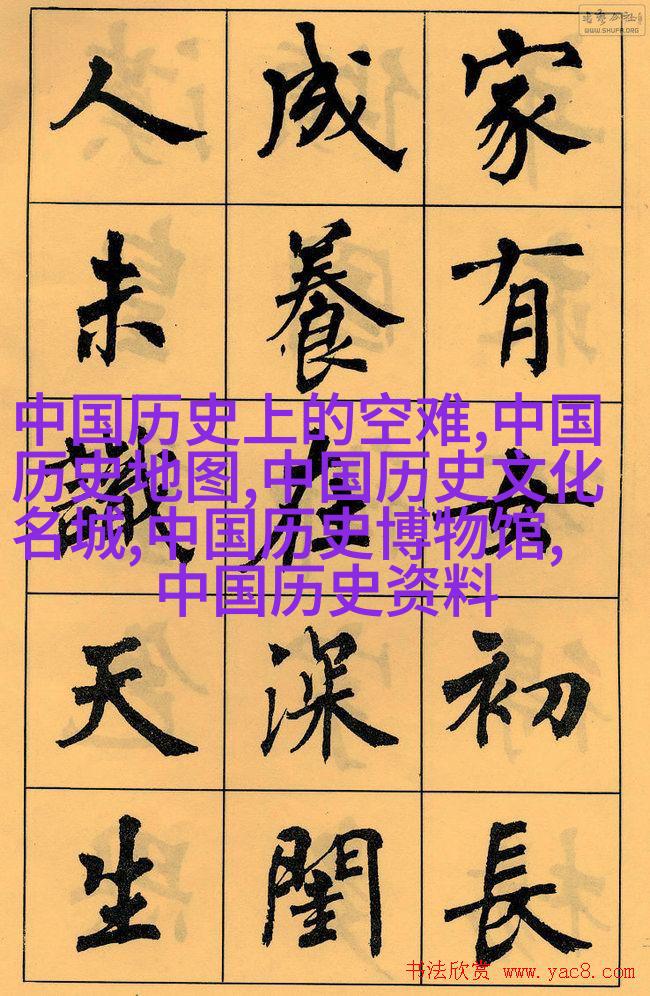 WWW.SHUFA.ORG
家有女初長
成養在深閨
人未識天生
中国历史上的空难,中国
历史地图,中国历史文化
名城,中国历史博物馆,
中国历史资料
书法欣赏 www.yac8.com